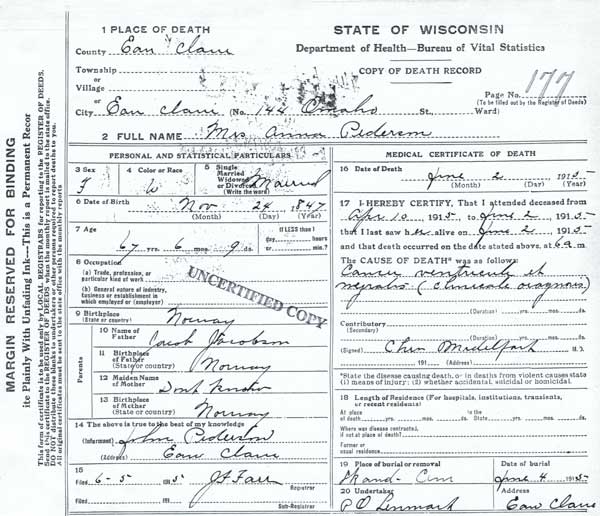 MARGIN RESERVED FOR BINDING
ite Plainly With Unfading Ink—This is a Permanent Recor
This form of certificate is to be used only by LOCAL REGISTRARS for reporting to the REGISTER OF DEEDS.
Send this certificate to the REGISTER OF DEEDS when the monthly report is mailed to the state office.
DO NOT distribute these blanks to undertakers or other persons required to report deaths to you.
All original certificates must be sent to the state office with the monthly reports
1 PLACE OF DEATH
County Eau Claire
Township
or
Village
or
City Eau Claire (No. 144 Omaho St., Ward)
STATE OF WISCONSIN
Department of Health—Bureau of Vital Statistics
COPY OF DEATH RECORD
Page No. 177
(To be filled out by the Register of Deeds)
2 FULL NAME Mrs Anna Pederson
PERSONAL AND STATISTICAL PARTICULARS
3 Sex F
4 Color or Race W
5 Single Married Widowed or Divorced (Write the word) Married
6 Date of Birth Nov 24 1847
(Month) (Day) (Year)
7 Age 67 yrs. 6 mos. 9 ds.
If LESS than 1 day, hours or min.
8 Occupation
(a) Trade, profession, or particular kind of work
(b) General nature of industry, business or establishment in which employed or (employer)
UNCERTIFIED COPY
9 Birthplace (State or country) Norway
Parents
10 Name of Father Jacob Jacobson
11 Birthplace of Father (State or country) Norway
12 Maiden Name of Mother Dont Know
13 Birthplace of Mother (State or country) Norway
14 The above is true to the best of my knowledge
(Informant) John Pederson
(Address) Eau Claire
15
Filed 6-5 1915 J F Farr
Registrar
Filed 191
Sub-Registrar
MEDICAL CERTIFICATE OF DEATH
16 Date of Death June 2 1915
(Month) (Day) (Year)
17 I HEREBY CERTIFY, That I attended deceased from
Apr 10 1915 to June 2 1915
that I last saw her alive on June 2 1915
and that death occurred on the date stated above, at 6 a m.
The CAUSE OF DEATH* was as follows:
Cancer ventriculi et
(Clinicale diagnosis)
(Duration) yrs. mos. ds.
Contributory
(Secondary)
(Duration) yrs. mos. ds.
(Signed) Chris Midelfart M. D.
191 (Address)
*State the disease causing death, or in deaths from violent causes state
(1) means of injury; (2) whether accidental, suicidal or homicidal.
18 Length of Residence (For hospitals, institutions, transients, or recent residents)
At place of death yrs. mos. ds. In the State yrs. mos. ds.
Where was disease contracted, if not at place of death?
Former or usual residence
19 Place of burial or removal
Date of burial
June 4 1915
20 Undertaker
Address
Eau Claire